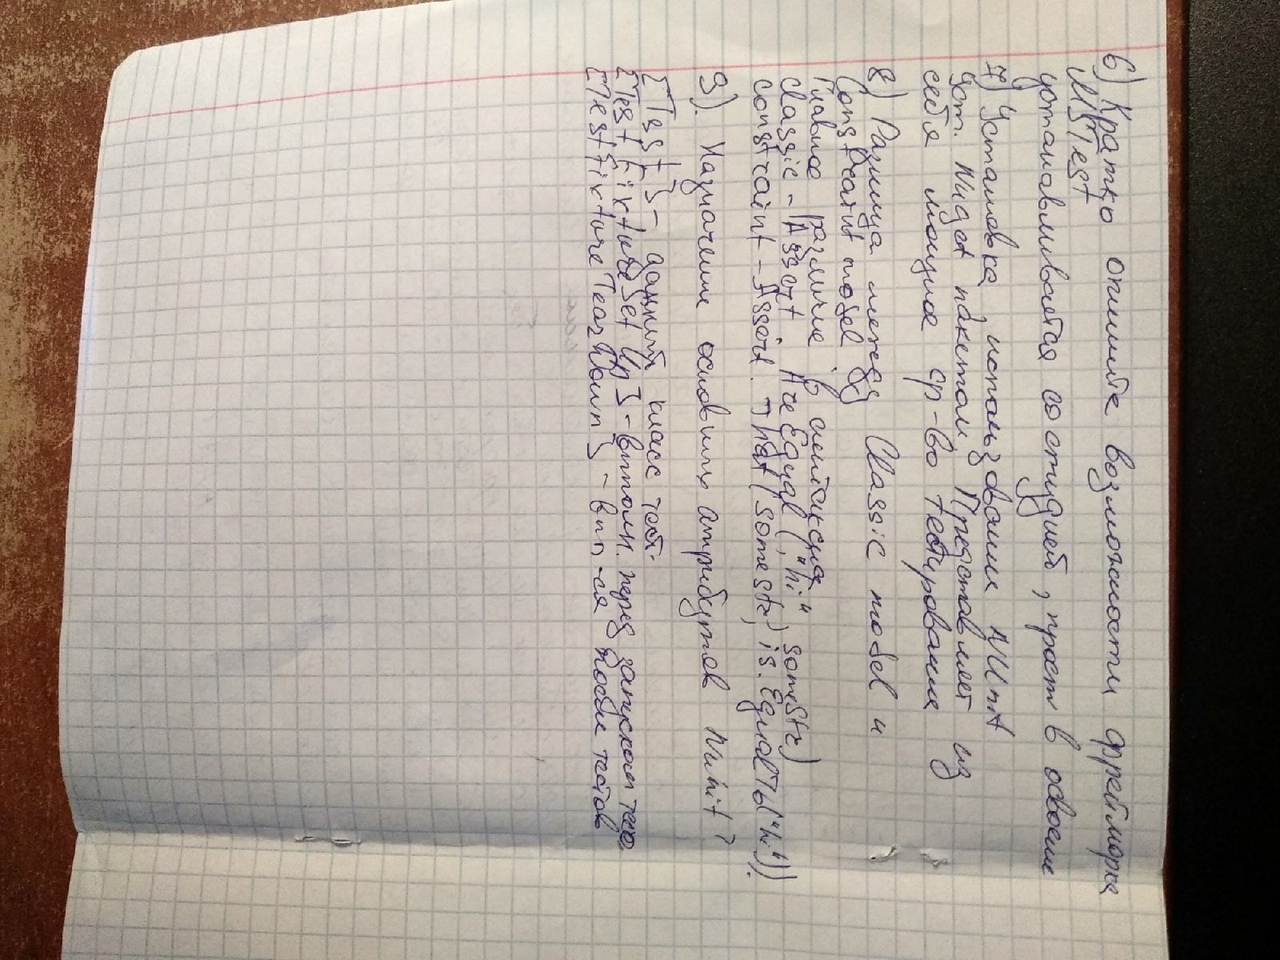 6) Кратко опишите возможности фреймворка
MSTest
устанавливается со студией, прост в освоение
7) Установка, использование NUnit
Уст. Nuget пакетом, Представляет из
себя мощное ср-во тестирование
8) Разница между Classic model и
Constraint model.
Главное различие в синтаксисе
classic - Assert. AreEqual ("hi" somestr)
constraint - Assert. That (somestr, is. EqualTo("hi"));
9). Назначение основных атрибутов Nunit?
[Test] - класс тест.
[TestFixtureSetUp] - выполн. перед запуском
[TestFixtureTearDown] - вып-ся после тестов